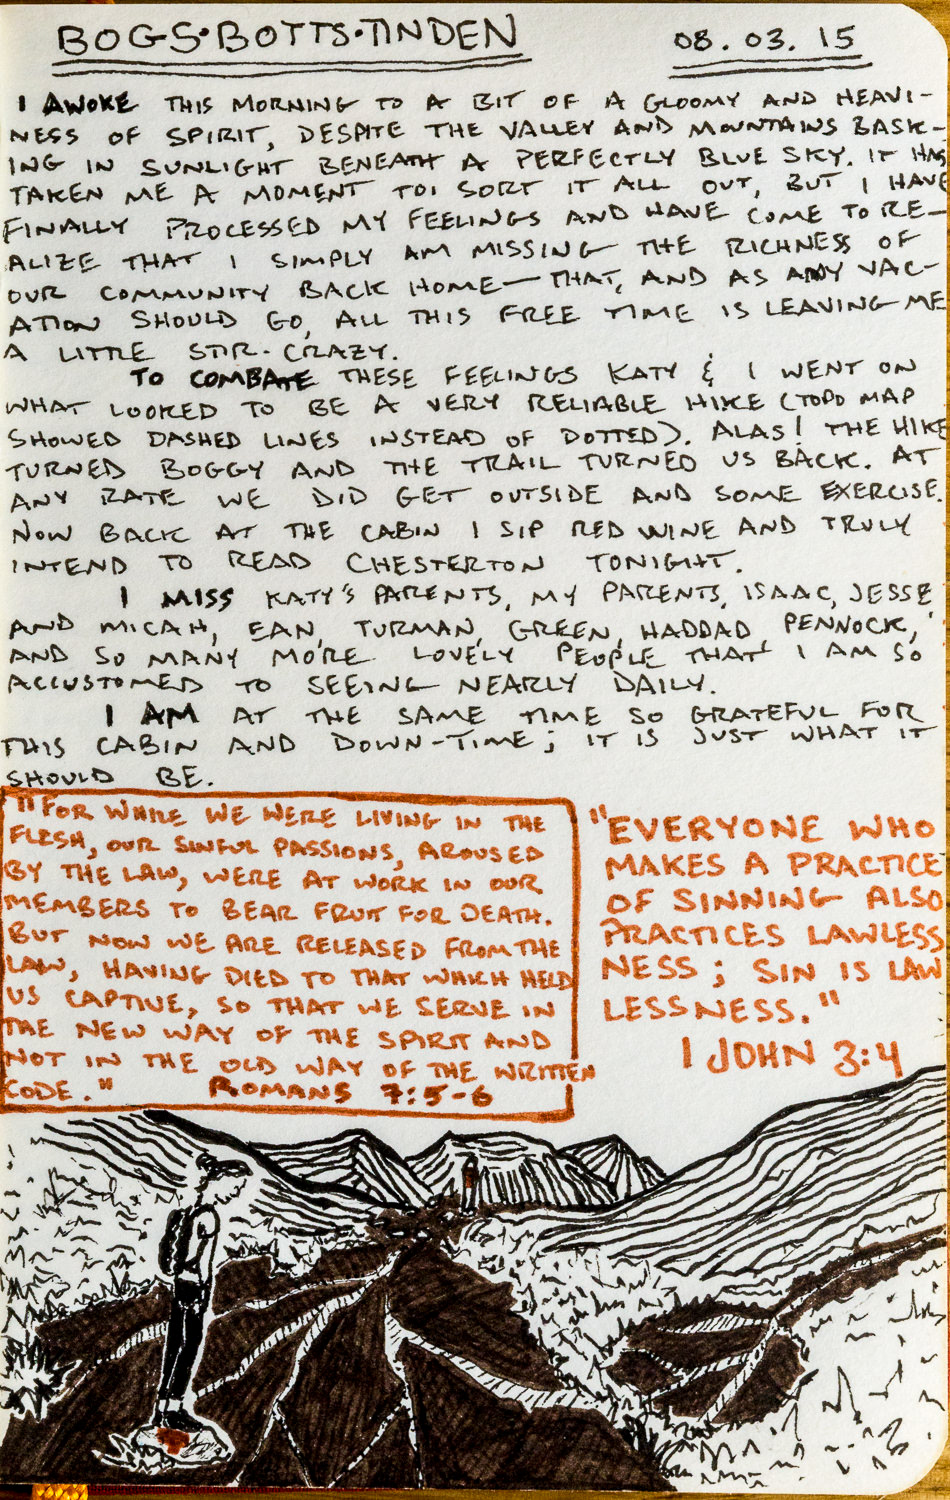 BOGS·BOTTS·TINDEN
08.03.15
I AWOKE THIS MORNING TO A BIT OF A GLOOMY AND HEAVI-
NESS OF SPIRIT, DESPITE THE VALLEY AND MOUNTAINS BASK-
ING IN SUNLIGHT BENEATH A PERFECTLY BLUE SKY. IT HAS
TAKEN ME A MOMENT TO SORT IT ALL OUT, BUT I HAVE
FINALLY PROCESSED MY FEELINGS AND HAVE COME TO RE-
ALIZE THAT I SIMPLY AM MISSING THE RICHNESS OF
OUR COMMUNITY BACK HOME—THAT, AND AS ANY VAC-
ATION SHOULD GO, ALL THIS FREE TIME IS LEAVING ME
A LITTLE STIR-CRAZY.
TO COMBATE THESE FEELINGS KATY & I WENT ON
WHAT LOOKED TO BE A VERY RELIABLE HIKE (TOPO MAP
SHOWED DASHED LINES INSTEAD OF DOTTED). ALAS! THE HIKE
TURNED BOGGY AND THE TRAIL TURNED US BACK. AT
ANY RATE WE DID GET OUTSIDE AND SOME EXERCISE.
NOW BACK AT THE CABIN I SIP RED WINE AND TRULY
INTEND TO READ CHESTERTON TONIGHT.
I MISS KATY'S PARENTS, MY PARENTS, ISAAC, JESSE
AND MICAH, EAN, TURMAN, GREEN, HADDAD, PENNOCK,
AND SO MANY MORE LOVELY PEOPLE THAT I AM SO
ACCUSTOMED TO SEEING NEARLY DAILY.
I AM AT THE SAME TIME SO GRATEFUL FOR
THIS CABIN AND DOWN-TIME; IT IS JUST WHAT IT
SHOULD BE.
"FOR WHILE WE WERE LIVING IN THE
FLESH, OUR SINFUL PASSIONS, AROUSED
BY THE LAW, WERE AT WORK IN OUR
MEMBERS TO BEAR FRUIT FOR DEATH.
BUT NOW WE ARE RELEASED FROM THE
LAW, HAVING DIED TO THAT WHICH HELD
US CAPTIVE, SO THAT WE SERVE IN
THE NEW WAY OF THE SPIRIT AND
NOT IN THE OLD WAY OF THE WRITTEN
CODE." ROMANS 7:5-6
"EVERYONE WHO
MAKES A PRACTICE
OF SINNING ALSO
PRACTICES LAWLESS
NESS; SIN IS LAW
LESSNESS."
I JOHN 3:4